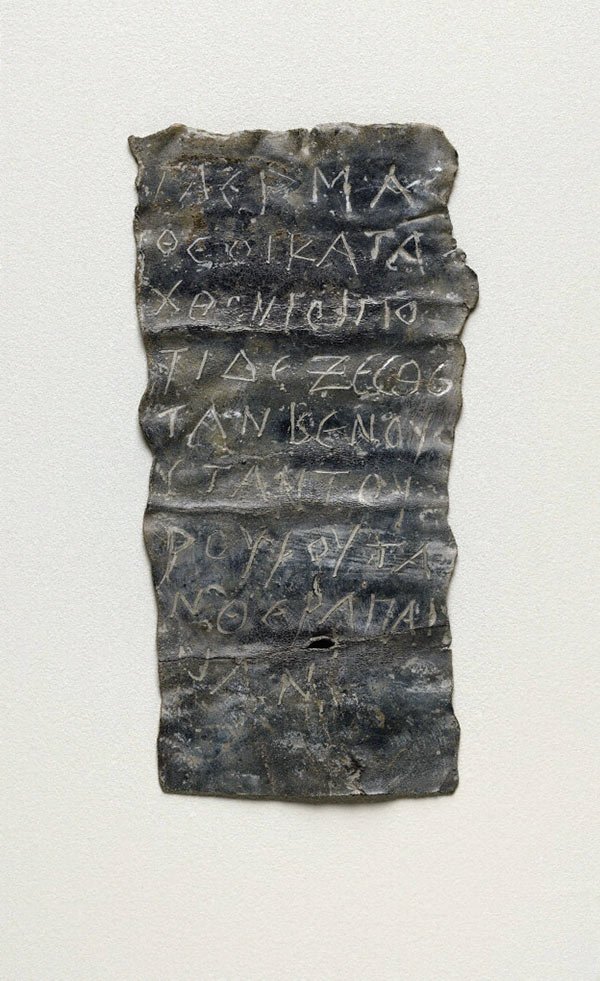 ΓΑΕΡΜΑ
ΘΕΟΙΚΑΤΑ
ΧΘΟΝΙΟΙΠΟ
ΤΙΔΕΞΕϹΘΕ
ΤΑΝΒΕΝΟΥ
ϹΤΑΝΤΟΥ
ΡΟΥΦΟΥΤΑ
ΝΘΕΡΑΠΑΙ
ΝΑΝ